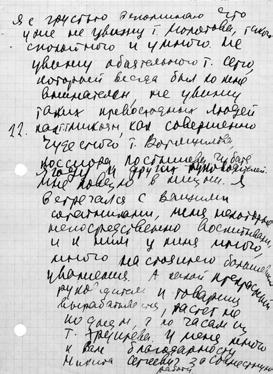 Я с грустью вспоминаю что
уже не увижу т. Молотова, такого
спокойного и умного. Не
увижу обаятельного т.
который всегда был ко мне
внимателен не увижу
таких превосходных людей
12. как совершенно
чудесного т. Ворошилова,
и других руководителей.
Мне повезло в жизни. Я
встречался с вашими
соратниками, меня некоторые
непосредственно воспитывали,
и к ним у меня много,
много настоящего большого
уважения. А какой прекрасный
руководитель и товарищ
вырабатывается, растет не
по дням, а по часам из
т. Хрущева. У меня много
благодарности
Никита Сергеевич за совместную
работу